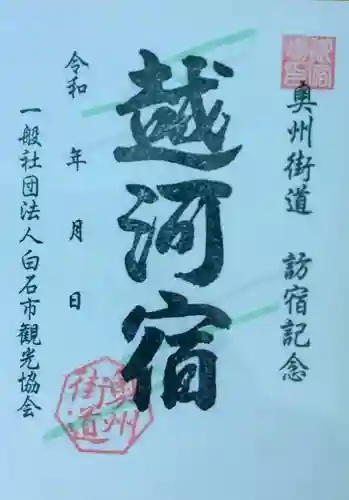 奥州街道 訪宿記念
越河宿
令和 年 月 日
一般社団法人白石市観光協会
奥州
街道